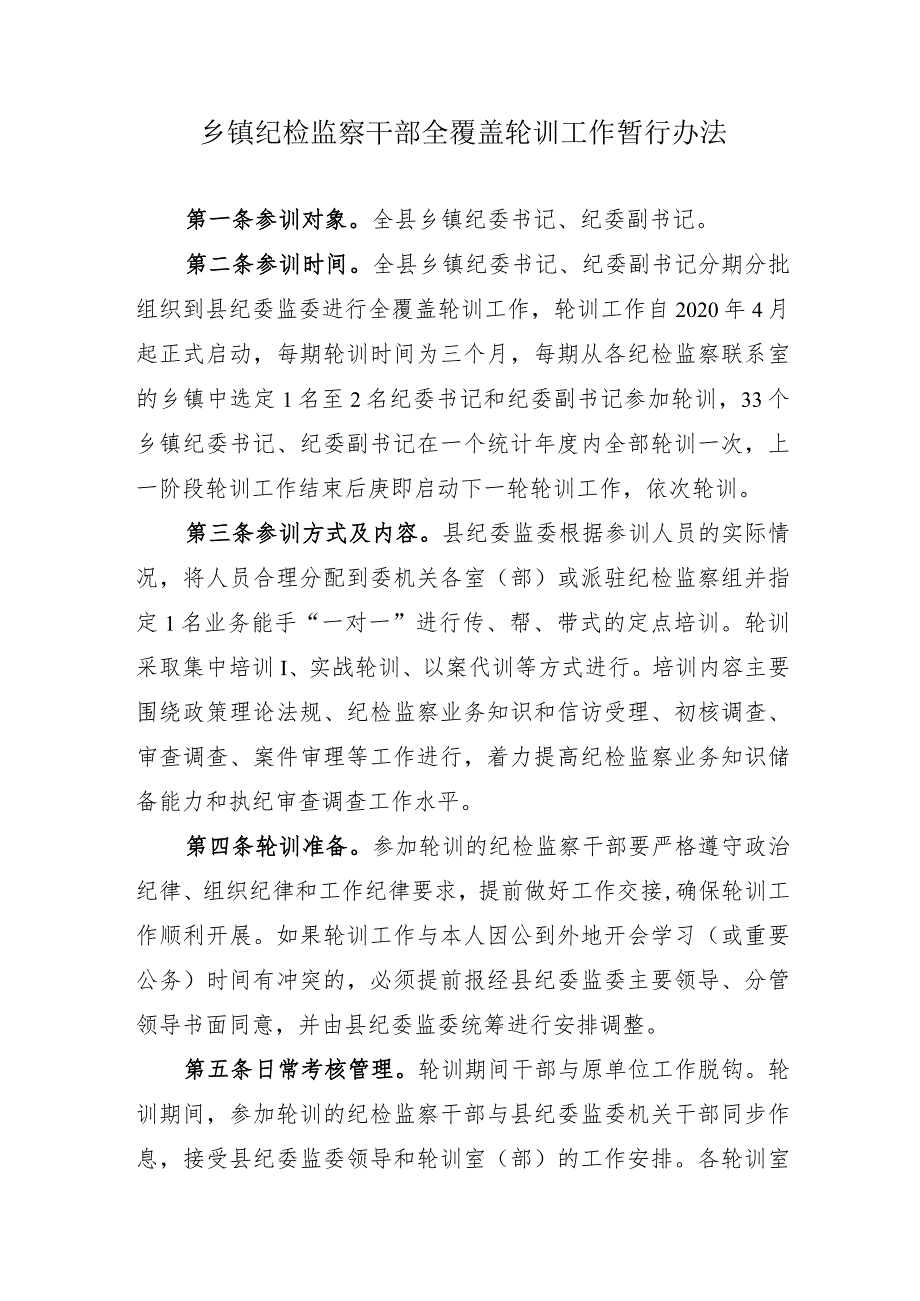 乡镇纪检监察干部全覆盖轮训工作暂行办法
第一条参训对象。全县乡镇纪委书记、纪委副书记。
第二条参训时间。全县乡镇纪委书记、纪委副书记分期分批
组织到县纪委监委进行全覆盖轮训工作，轮训工作自2020年4月
起正式启动，每期轮训时间为三个月，每期从各纪检监察联系室
的乡镇中选定1名至2名纪委书记和纪委副书记参加轮训，33个
乡镇纪委书记、纪委副书记在一个统计年度内全部轮训一次，上
一阶段轮训工作结束后庚即启动下一轮轮训工作，依次轮训。
第三条参训方式及内容。县纪委监委根据参训人员的实际情
况，将人员合理分配到委机关各室（部）或派驻纪检监察组并指
定1名业务能手“一对一”进行传、帮、带式的定点培训。轮训
采取集中培训I、实战轮训、以案代训等方式进行。培训内容主要
围绕政策理论法规、纪检监察业务知识和信访受理、初核调查、
审查调查、案件审理等工作进行，着力提高纪检监察业务知识储
备能力和执纪审查调查工作水平。
第四条轮训准备。参加轮训的纪检监察干部要严格遵守政治
纪律、组织纪律和工作纪律要求，提前做好工作交接,确保轮训工
作顺利开展。如果轮训工作与本人因公到外地开会学习（或重要
公务）时间有冲突的，必须提前报经县纪委监委主要领导、分管
领导书面同意，并由县纪委监委统筹进行安排调整。
第五条日常考核管理。轮训期间干部与原单位工作脱钩。轮
训期间，参加轮训的纪检监察干部与县纪委监委机关干部同步作
息，接受县纪委监委领导和轮训室（部）的工作安排。各轮训室